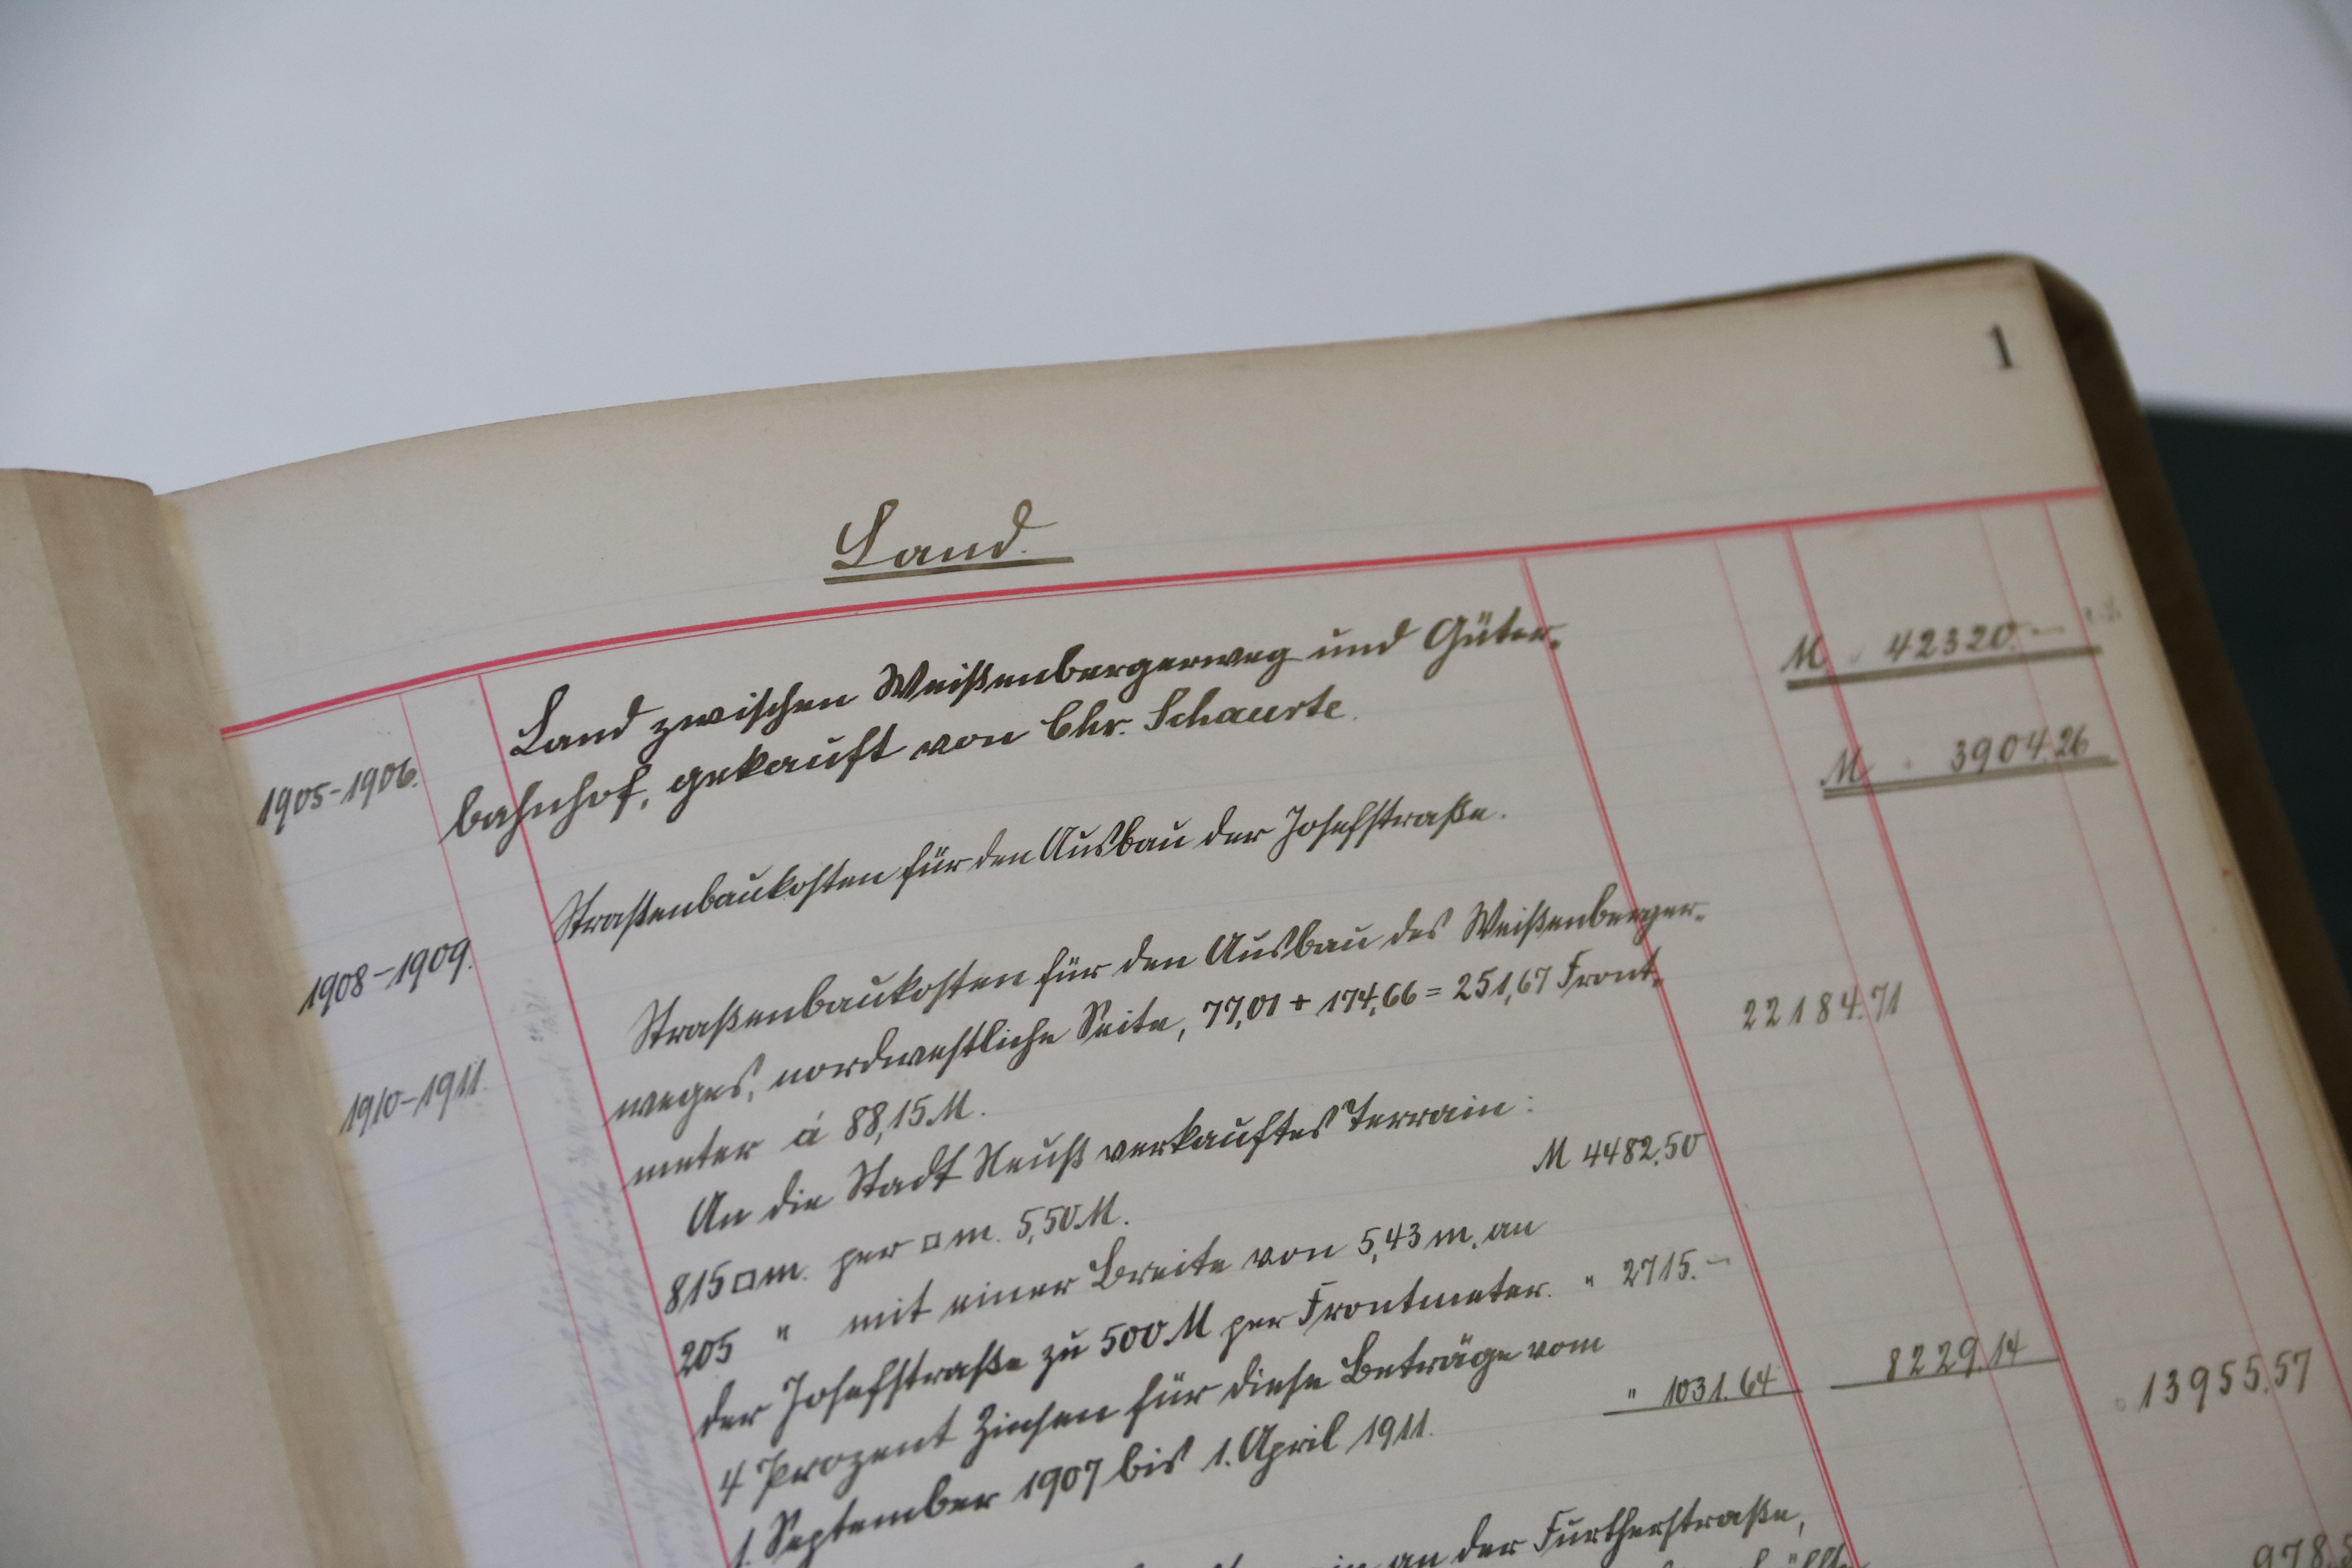 1
Land.
Land zwischen Weißenbergerweg und Güter- M 42320.–
1905-1906. bahnhof, gekauft von Chr. Schaurte.
Straßenbaukosten für den Ausbau der Josefstraße. M 3904.26
1908-1909.
Straßenbaukosten für den Ausbau des Weißenberger-
1910-1911. weges, nordwestliche Seite, 77,01 + 174,66 = 251,67 Front- 22184.71
meter á 88,15 M.
An die Stadt Neuß verkauftes Terrain:
815 □m. per □m. 5,50 M. M 4482.50
205 " mit einer Breite von 5,43 m. an
der Josefstraße zu 500 M per Frontmeter. " 2715.–
4 Prozent Zinsen für diese Beträge vom
1. September 1907 bis 1. April 1911. " 1031.64 8229.14 13955.57
an der Furtherstraße,
978